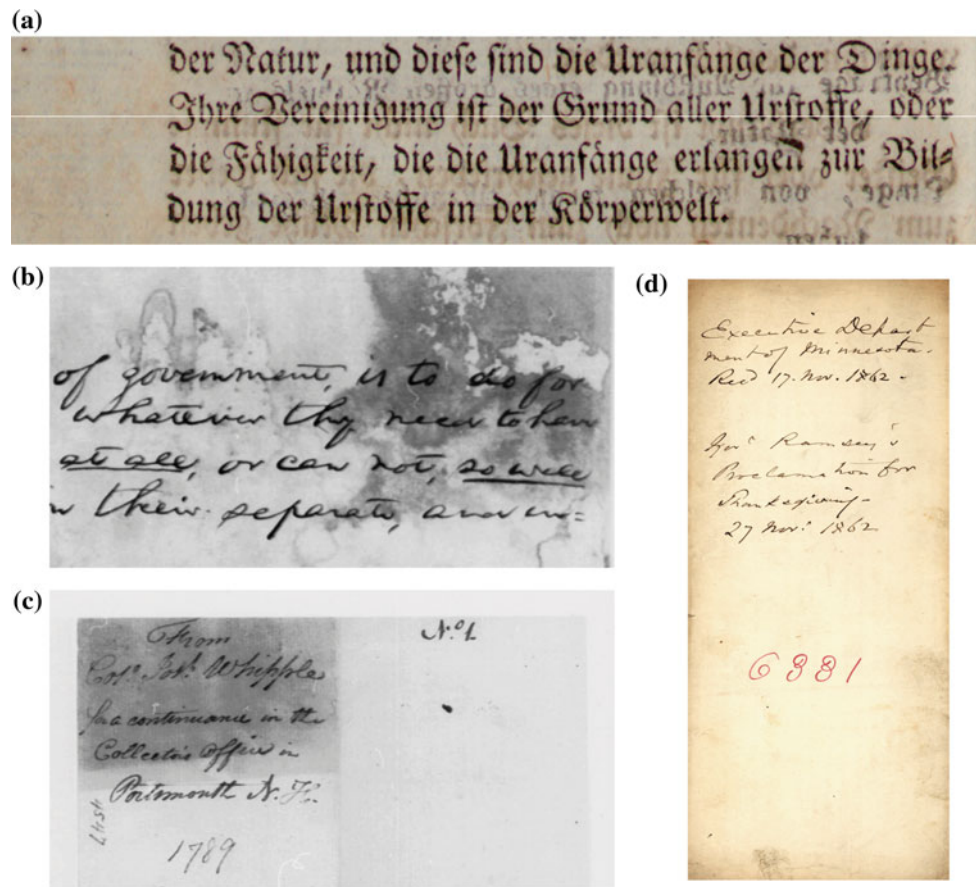 (a)
der Natur, und diese sind die Uranfänge der Dinge.
Ihre Vereinigung ist der Grund aller Urstoffe, oder
die Fähigkeit, die die Uranfänge erlangen zur Bil=
dung der Urstoffe in der Körperwelt.
(b)
of government, is to do for
whatever they need to have
at all, or can not, so well
in their separate, and in=
(c)
From
Col.º Jos.h Whipple
for a continuance in the
Collector's Office in
Portsmouth N. H.
1789
4547
Nº. 1
(d)
Executive Depart
ment of Minnesota.
Recd 17. Nov. 1862-
Govr Ramsey's
Proclamation for
Thanksgiving-
27 Nov: 1862
6331